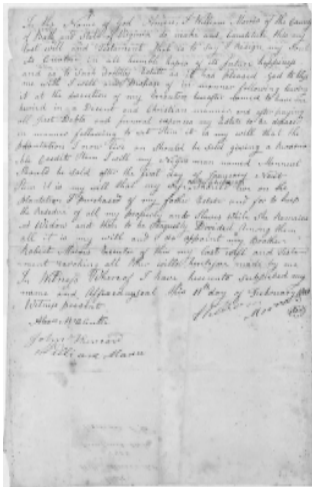 In the Name of God Amen I William Morris of the County
of Bath and State of Virginia do make and constitute this my
last will and Testament That is to say I resign my Soul
its Creator in all humble hopes of its future happiness
and as to such Worldly Estate as it has pleased God to bless
me with I will and dispose of in manner following leaving
it to the direction of my Executor hereafter named to have me
buried in a Decent and Christian manner and after paying
all just Debts and funeral expences my Estate to be disposed
in manner following to wit Item it is my will that the
plantation I now live on should be Sold giving a
Credit Item I will my Negro man named
Should be sold after the first day of January Next
Item it is my will that my live on the
plantation I purchased of my father Estate and for to keep
the balance of all my property and while She remains
a Widow and then to be Equally Divided Among them
all it is my will and I do appoint my Brother
Robert Morris Executor of this my last will and Testa
ment revoking all other wills heretofore made by me
In Witness Whereof I have hereunto subscribed my
name and affixed my seal this 11th day of February
Witness present
William Morris
John
William Mann